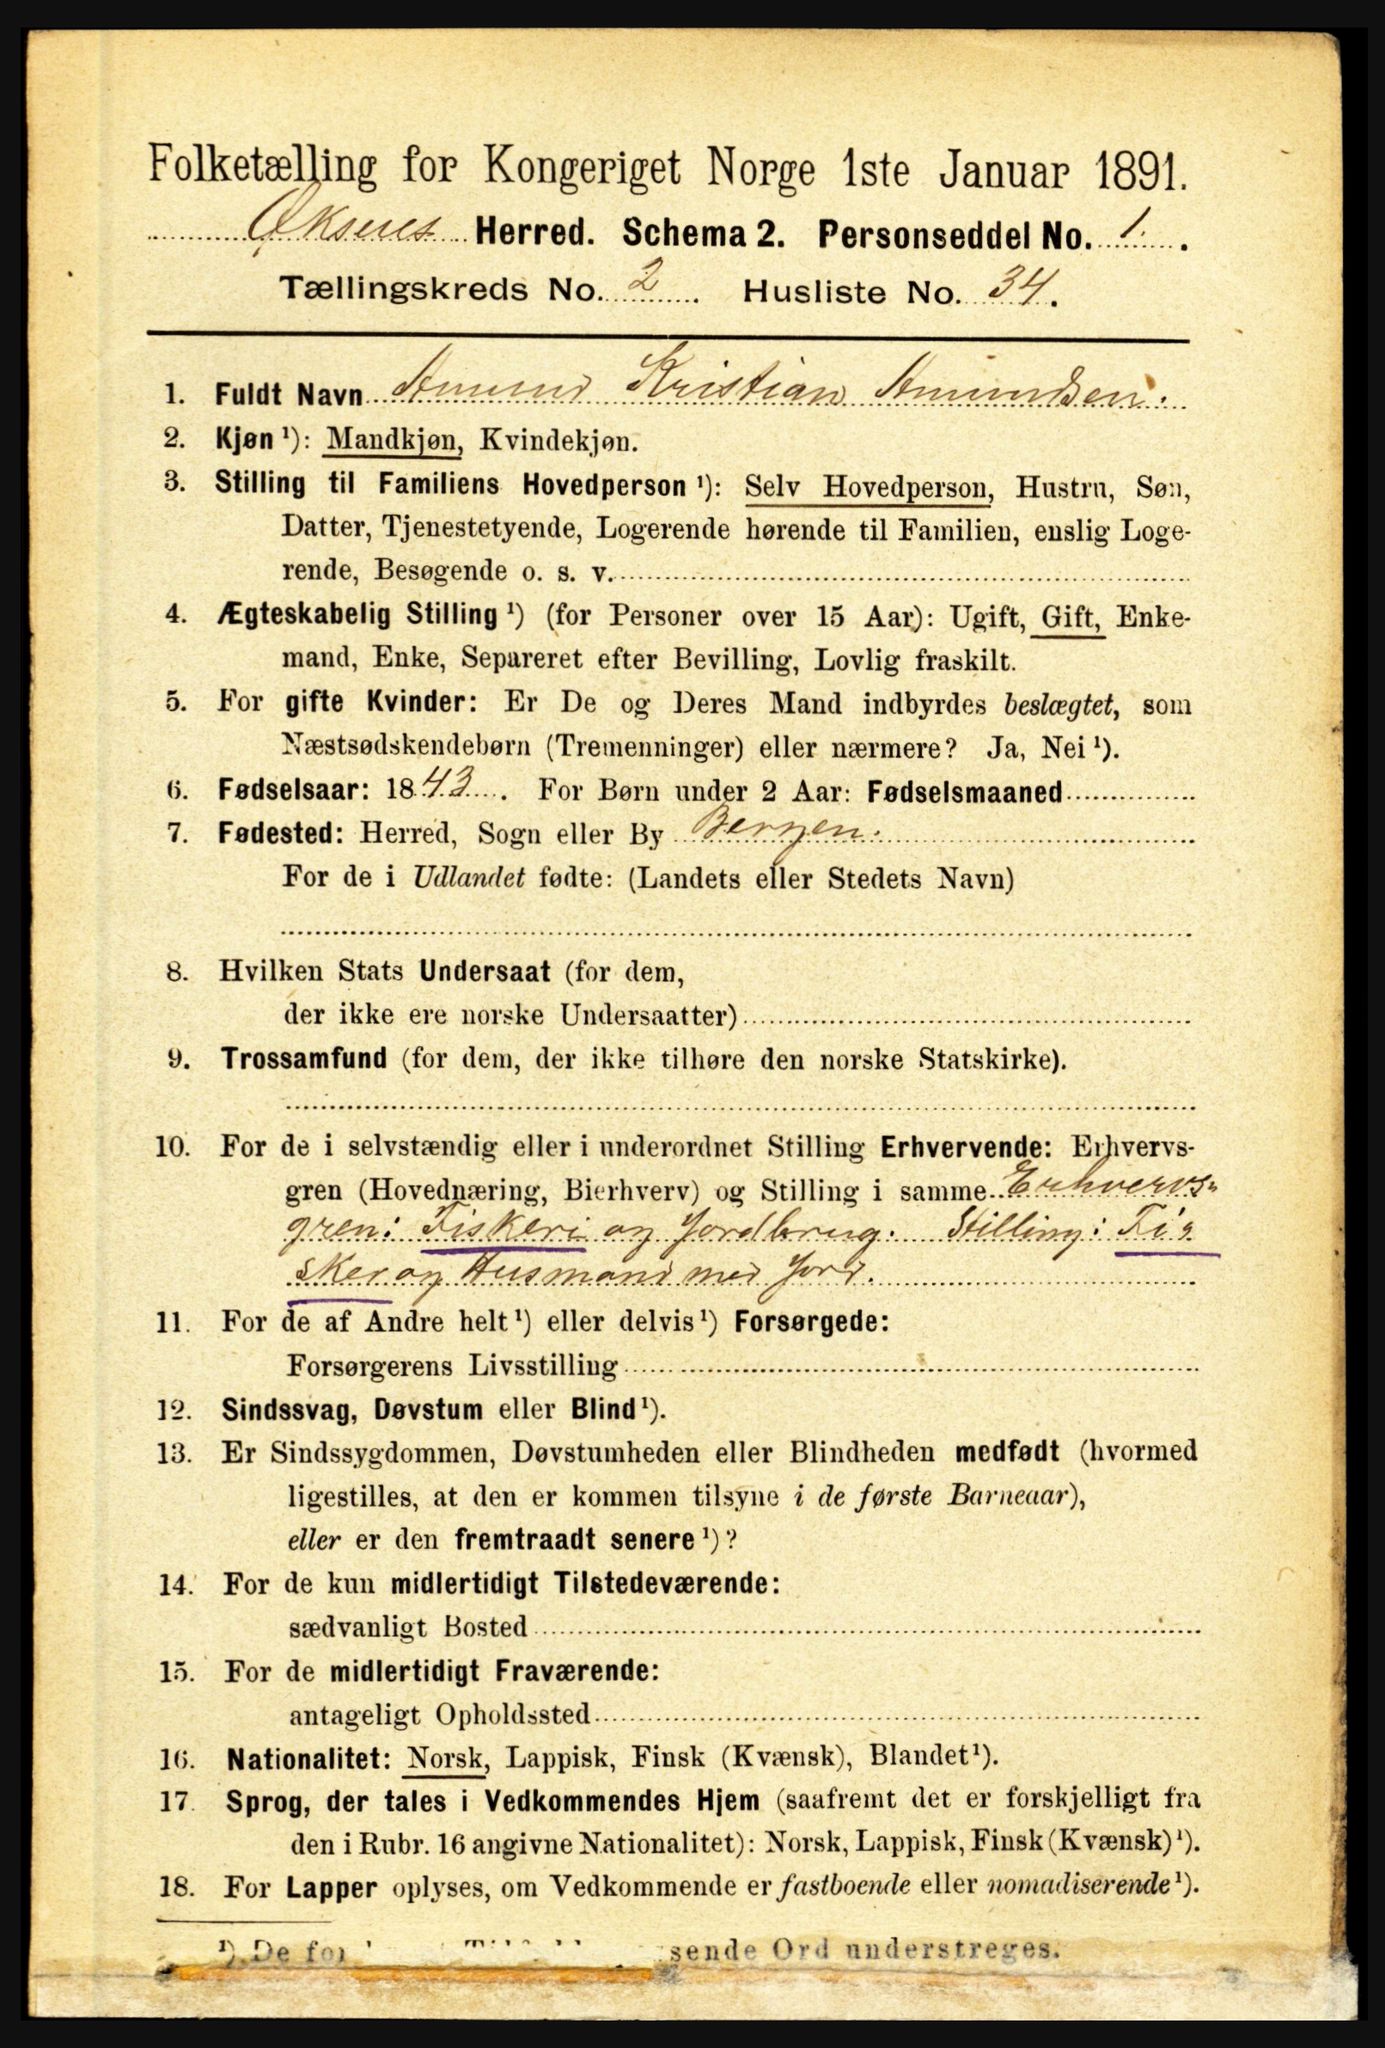 Folketælling for Kongeriget Norge 1ste Januar 1891.
Øksnes Herred. Schema 2. Personseddel No. 1.
Tællingskreds No. 2. Husliste No. 34.
1. Fuldt Navn Amund Kristian Amundsen.
2. Kjøn ¹): Mandkjøn, Kvindekjøn.
3. Stilling til Familiens Hovedperson ¹): Selv Hovedperson, Hustru, Søn,
Datter, Tjenestetyende, Logerende hørende til Familien, enslig Loge-
rende, Besøgende o. s. v.
4. Ægteskabelig Stilling ¹) (for Personer over 15 Aar): Ugift, Gift, Enke-
mand, Enke, Separeret efter Bevilling, Lovlig fraskilt.
5. For gifte Kvinder: Er De og Deres Mand indbyrdes beslægtet, som
Næstsødskendebørn (Tremenninger) eller nærmere? Ja, Nei ¹).
6. Fødselsaar: 1843. For Børn under 2 Aar: Fødselsmaaned
7. Fødested: Herred, Sogn eller By Bergen.
For de i Udlandet fødte: (Landets eller Stedets Navn)
8. Hvilken Stats Undersaat (for dem,
der ikke ere norske Undersaatter)
9. Trossamfund (for dem, der ikke tilhøre den norske Statskirke).
10. For de i selvstændig eller i underordnet Stilling Erhvervende: Erhvervs-
gren (Hovednæring, Bierhverv) og Stilling i samme Erhvervs-
gren: Fiskeri og Jordbrug. Stilling: Fi-
sker og Husmand med Jord.
11. For de af Andre helt ¹) eller delvis ¹) Forsørgede:
Forsørgerens Livsstilling
12. Sindssvag, Døvstum eller Blind ¹).
13. Er Sindssygdommen, Døvstumheden eller Blindheden medfødt (hvormed
ligestilles, at den er kommen tilsyne i de første Barneaar),
eller er den fremtraadt senere ¹)?
14. For de kun midlertidigt Tilstedeværende:
sædvanligt Bosted
15. For de midlertidigt Fraværende:
antageligt Opholdssted
16. Nationalitet: Norsk, Lappisk, Finsk (Kvænsk), Blandet ¹).
17. Sprog, der tales i Vedkommendes Hjem (saafremt det er forskjelligt fra
den i Rubr. 16 angivne Nationalitet): Norsk, Lappisk, Finsk (Kvænsk) ¹).
18. For Lapper oplyses, om Vedkommende er fastboende eller nomadiserende ¹).
¹) De for sende Ord understreges.